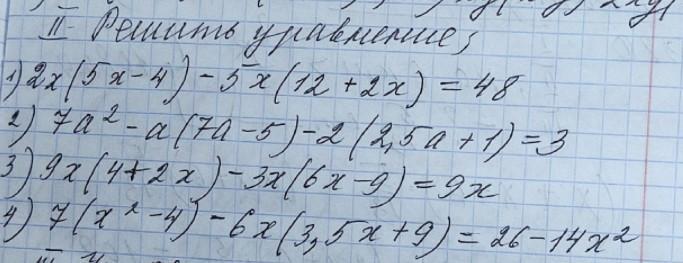 II Решить уравнение;
1) 2x(5x-4)-5x(12+2x)=48
2) 7a²-a(7a-5)-2(2,5a+1)=3
3) 9x(4+2x)-3x(6x-9)=9x
4) 7(x²-4)-6x(3,5x+9)=26-14x²